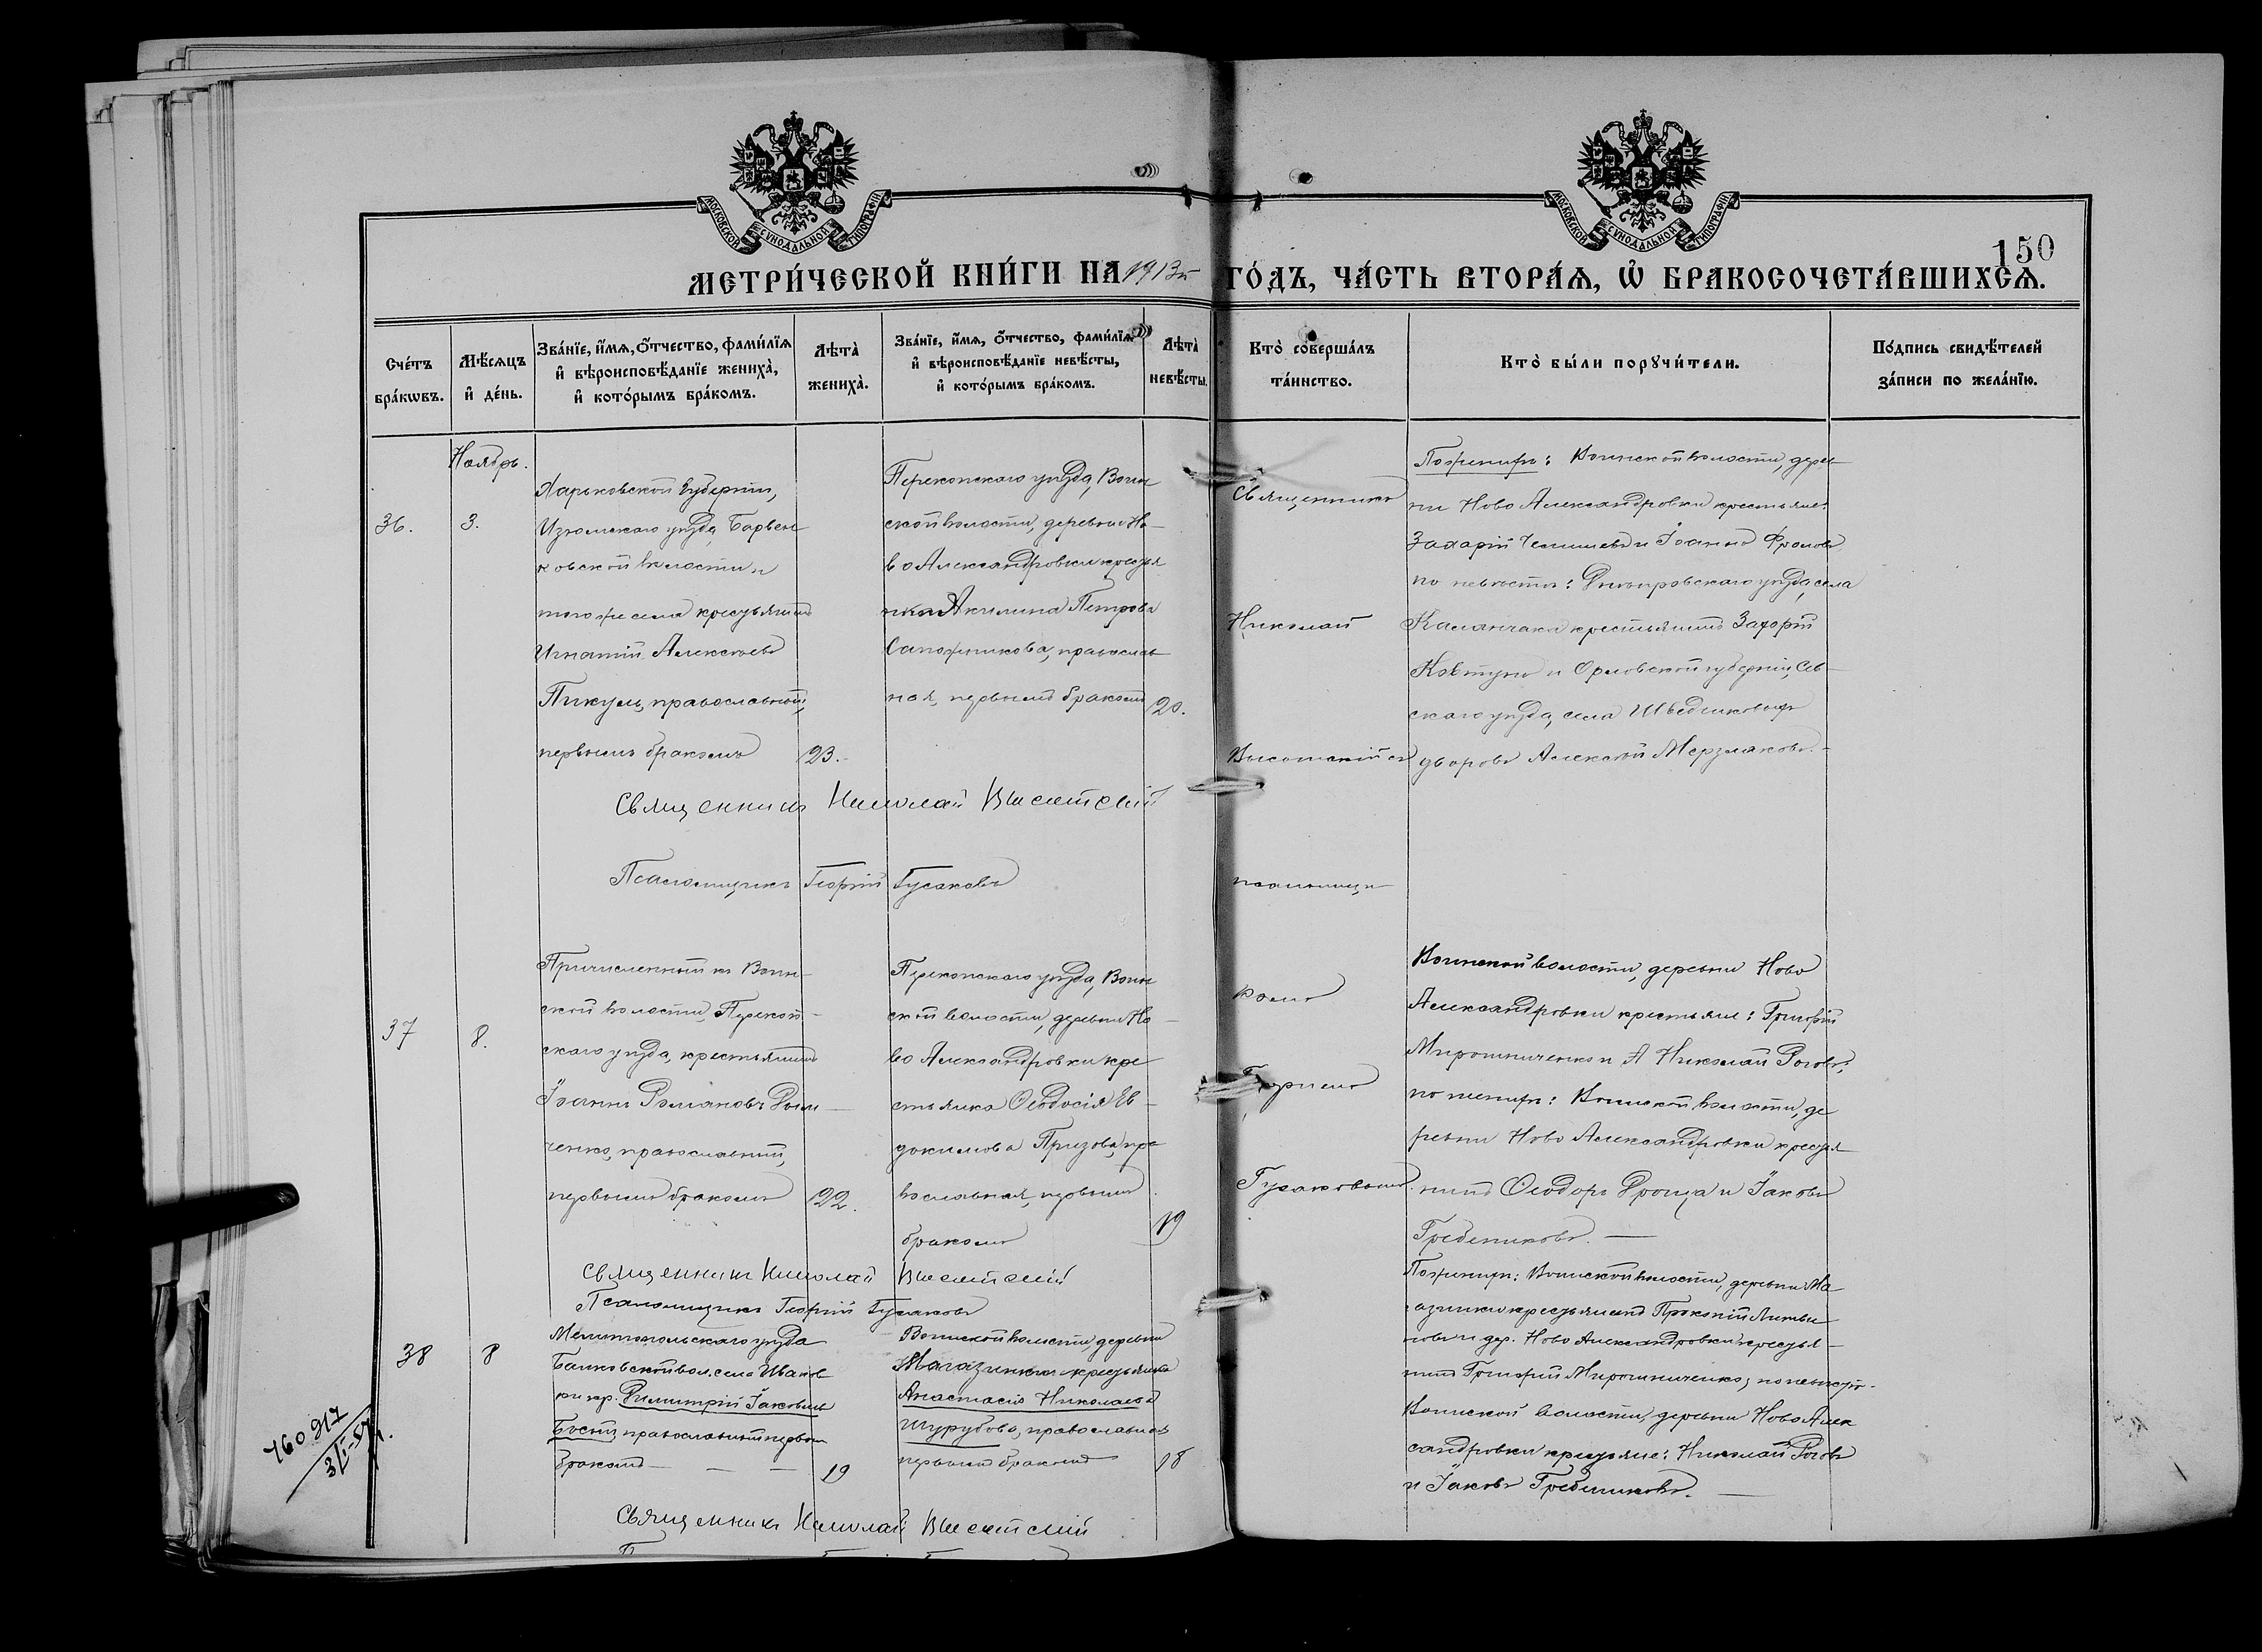 МОСКОВСКОЙ СѴНОДАЛЬНОЙ ТИПОГРАФІИ
МОСКОВСКОЙ СѴНОДАЛЬНОЙ ТИПОГРАФІИ
150
МЕТРИ́ЧЕСКОЙ КНИ́ГИ НА 1913 ГО́ДЪ, ЧА́СТЬ ВТОРА́Ѧ, Ѽ БРАКОСОЧЕТА́ВШИХСѦ.
Сче́тъ
бра́кѡвъ.
Мѣ́сѧцъ
и҆ де́нь.
Зва́нїе, и҆́мѧ, ѻ҆́тчество, фами́лїѧ
и҆ вѣроисповѣ́данїе жениха̀,
и҆ кото́рымъ бра́комъ.
Лѣта̀
жениха̀.
Зва́нїе, и҆́мѧ, ѻ҆́тчество, фами́лїѧ
и҆ вѣроисповѣ́данїе невѣ́сты,
и҆ кото́рымъ бра́комъ.
Лѣта̀
невѣ́сты.
Кто̀ соверша́лъ
та́инство.
Кто̀ бы́ли порꙋчи́тели.
По́дпись свидѣ́телей
за́писи по жела́нїю.
Ноябрь.
36.
3.
Харьковской Губерніи,
Изюмскаго уѣзда, Барвен
ковской волости и
того же села крестьянинъ
Игнатій Алексѣевъ
Пикуль, православный,
первымъ бракомъ
23.
Перекопскаго уѣзда, Воин
ской волости, деревни Но-
во Александровки крестья
нка Акилина Петрова
Сапожникова, православ
ная, первымъ бракомъ
20.
Священникъ
Николай
Высотскій съ
псаломщи-
комъ
Георгіемъ
Гусаковымъ.
По женихѣ: Воинской волости, дерев-
ни Ново Александровки крестьяне:
Захарій Чемшевъ и Іоаннъ Фроловъ,
по невѣстѣ: Днѣпровскаго уѣзда, села
Каланчака крестьянинъ Захарій
Ковтунъ и Орловской губерніи, Сѣв-
скаго уѣзда, села Шведчиковыхъ
дворовъ Алексѣй Мерзляковъ.-
Священникъ Николай Высотскій
Псаломщикъ Георгій Гусаковъ
37
8.
Причисленный къ Воин-
ской волости, Перекоп-
скаго уѣзда, крестьянинъ
Іоаннъ Романовъ Дем-
ченко, православный,
первымъ бракомъ
22.
Перекопскаго уѣзда, Воин
ской волости, деревни Но-
во Александровки кре
стьянка Ѳеодосія Ев-
докимова Призова, пра
вославная, первымъ
бракомъ
19
Воинской волости, деревни Ново
Александровки крестьяне: Григорій
Мирошниченко и Николай Роговъ;
по женихѣ: Воинской волости, де
ревни Ново Александровки крестья
нинъ Ѳеодоръ Дроща и Іаковъ
Гребениковъ.—
Священникъ Николай Высотскій
Псаломщикъ Георгій Гусаковъ
38
8
Мелитопольскаго уѣзда
Балковской вол. села Иванов
ки кр. Димитрій Іаковлевъ
Бостъ, православный первым
бракомъ — — —
19
Воинской волости, деревни
Магазинки крестьянка
Анастасія Николаева
Шурубова, православная
первымъ бракомъ
18
По женихѣ: Воинской волости, деревни Ма
газинки крестьянинъ Прокопій Литви
новъ и дер. Ново Александровки крестья-
нинъ Григорій Мирошниченко; по невѣстѣ-
Воинской волости, деревни Ново Алек
сандровки крестьяне: Николай Роговъ
и Іаковъ Гребениковъ. —
760917
3/I-57
Священникъ Николай Высотскій